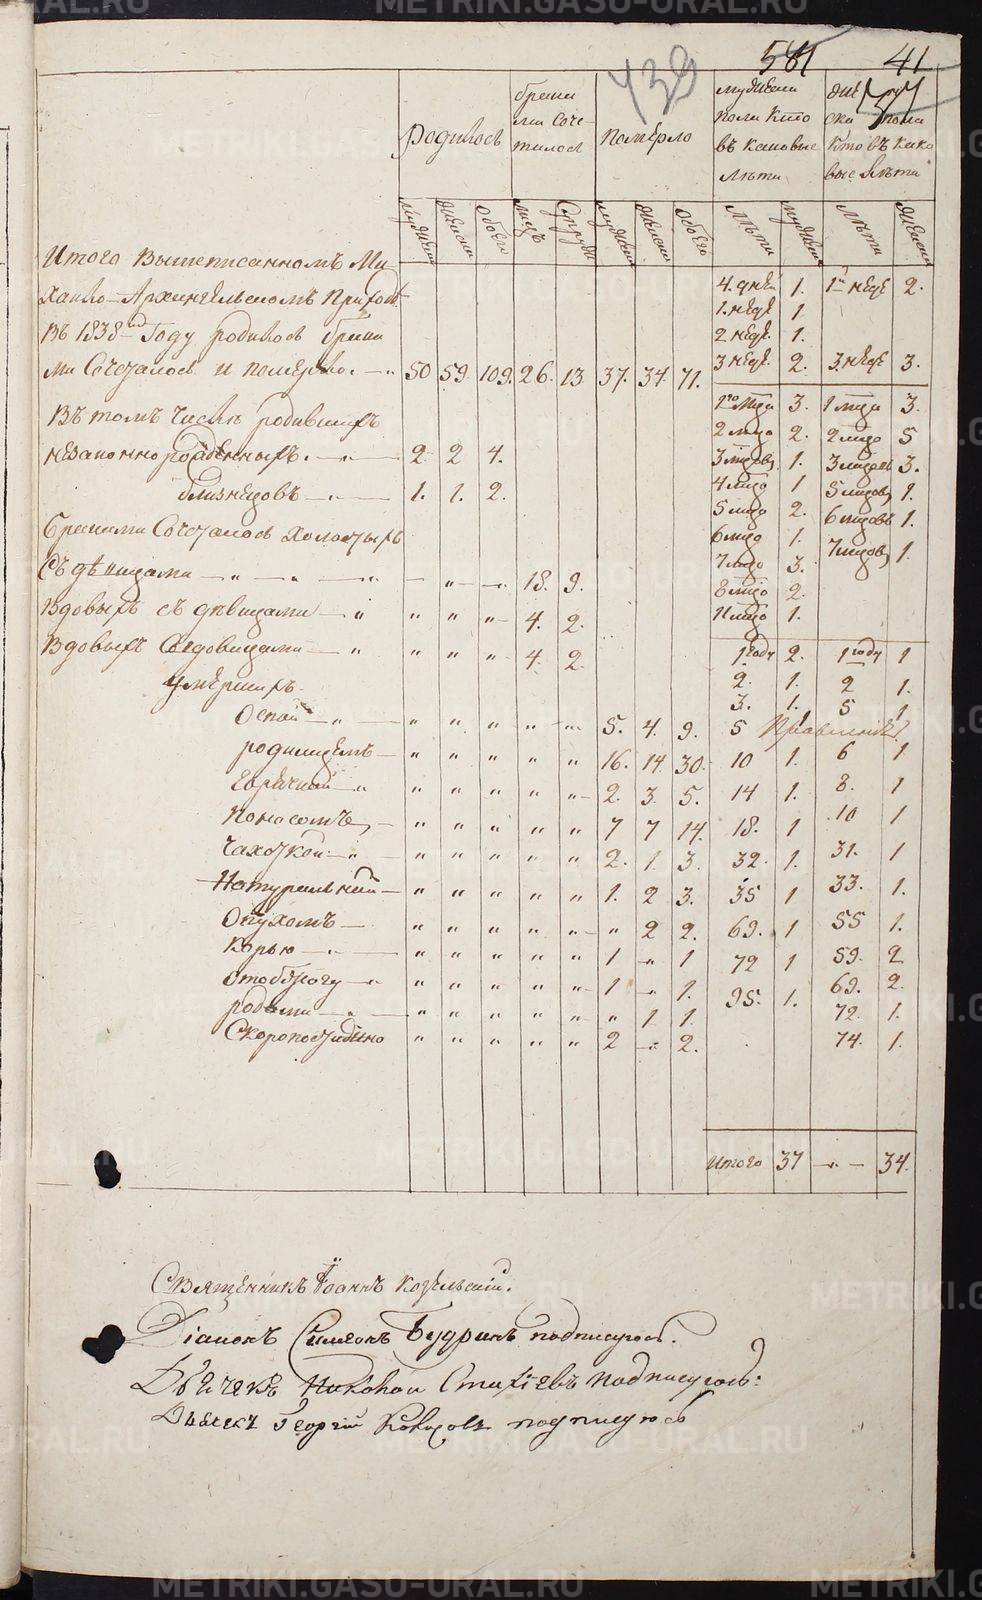 439 581 41
Родилось
браками сочеталось
Померло
мужеска пола кто въ каковые лѣта
женска пола кто въ каковые лѣта
мужеска женска обоего лицъ супруж мужеска женска обоего лѣта мужеска лѣта женска
Итого вышеписанномъ Ми
хаило-Архангельскомъ Приходѣ
въ 1838мъ Году родилось брака
ми Сочеталось и померло. — " 50 59 109. 26. 13 37. 34 71.
Въ томъ числѣ родившихъ
незаконнорожденныхъ. — " — 2 2 4.
близнецовъ — " — 1. 1. 2.
Браками Сочеталось холостыхъ
Съ дѣвицами — " — " — " — " — 18. 9.
Вдовыхъ съ дѣвицами — " " " " 4. 2.
Вдовыхъ Совдовицами — " " " " 4. 2.
Умершихъ.
Оспой — " — " " " " " 5. 4. 9.
родимцемъ — " " " " " 16. 14 30.
Горячкой — " " " " " " 2. 3. 5.
Поносомъ, — " " " " " 7 7 14.
Чахоткой — " — " " " " " 2. 1. 3.
Натуральной — " " " " " 1. 2 3.
Опухомъ — " " " " " " 2 2.
Корью — " — " " " " " 1 " 1
" " " " " 1 " 1.
родами — " — " " " " " " 1 1.
Скоропостижно " " " " " 2 " 2.
4. дней 1. 1й неде 2.
1. неде 1.
2 неде. 1.
3 неде. 2. 3. неде 3.
1го мца 3. 1 мца 3.
2 мцо 2. 2 мцо 5
3 мцовъ 1. 3 мцовъ 3.
4 мцо 1 5 мцовъ 1.
5 мцо 2. 6 мцовъ 1.
6 мцо 1. 7 мцовъ 1.
7 мцо 3.
8 мцо 2.
11 мцо 1.
1 году 2. 1 году 1
2. 1. 2 1.
3. 1. 5 1
5 1
10 1. 6 1
14 1. 8. 1
18. 1 10 1
32. 1. 31. 1
35 1 33. 1.
69. 1 55 1.
72 1 59. 2
95. 1. 69. 2.
72. 1.
74. 1.
Итого 37 — " — 34.
Священникъ Iоаннъ Козельскiй.
Дiаконъ Симеонъ Будринъ подписуюсь.
Дьячекъ Стахiевъ подписуюсь:
Дьячекъ Георгiй подписуюсь
METRIKI.GASO-URAL.RU